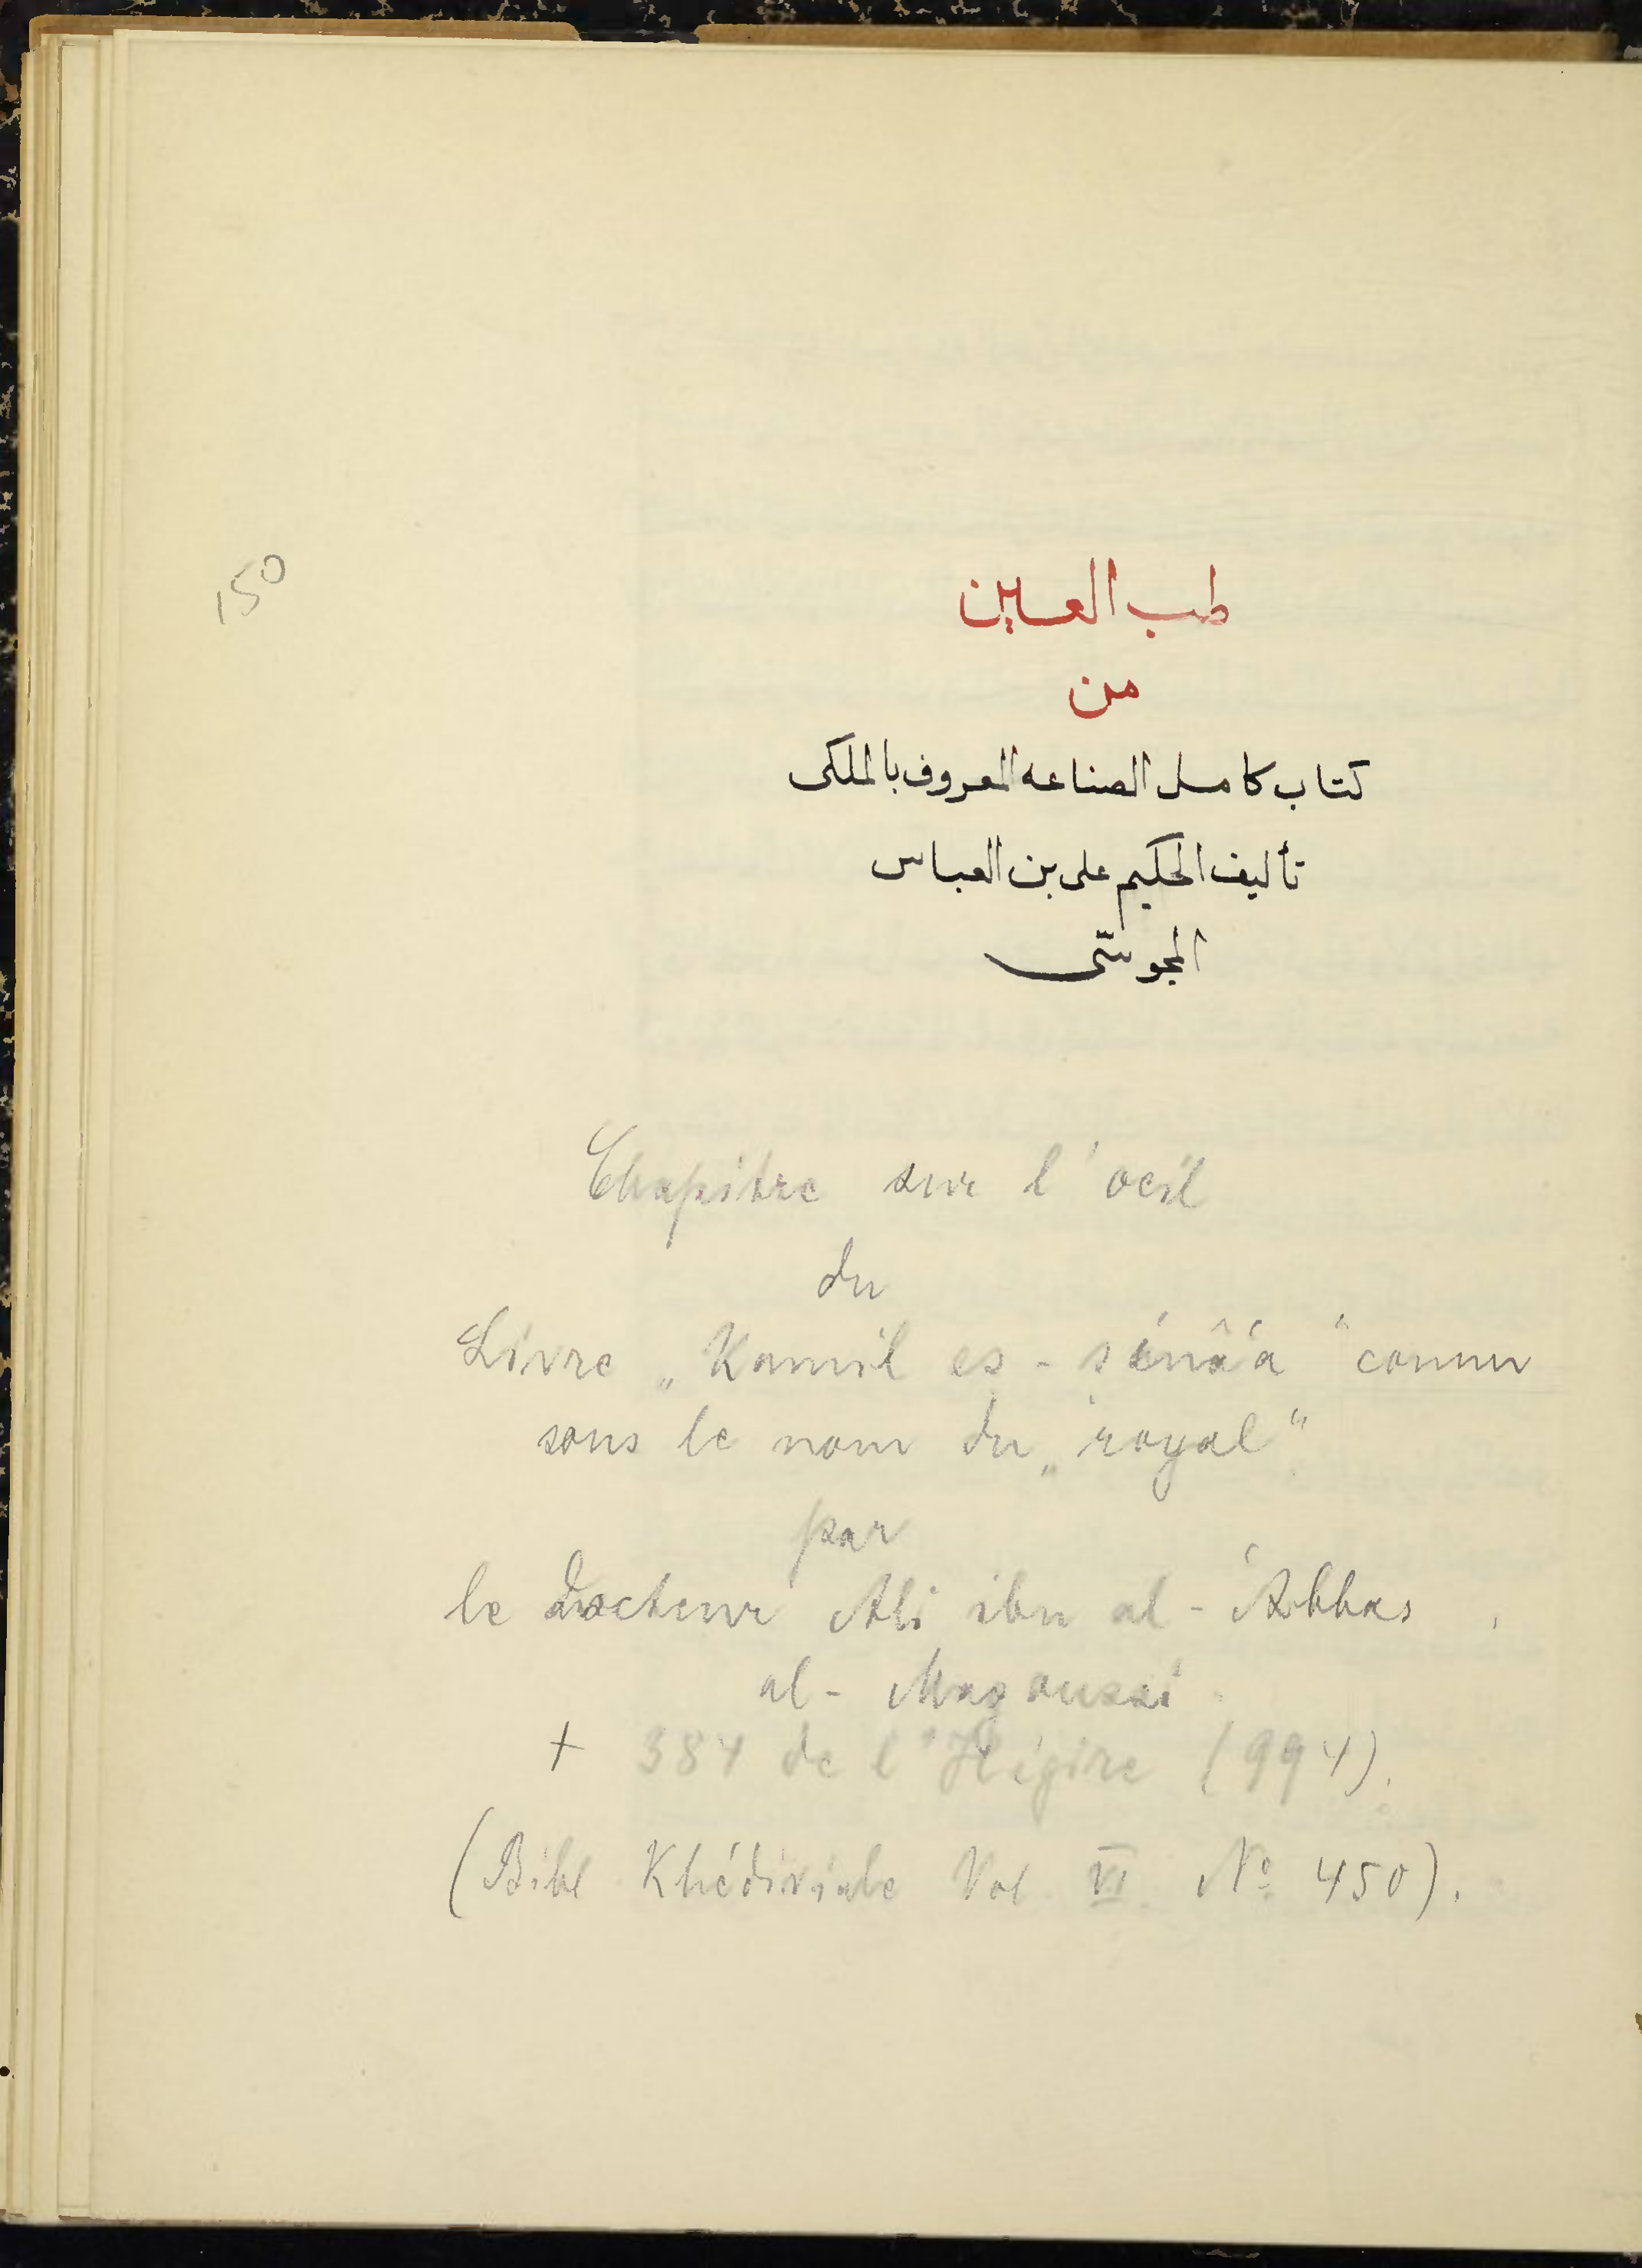 150
طب العين
من
كتاب كامل الصناعه المعروف بالملكى
تأليف الحكيم على بن العباس
المجوسى
Chapitre sur l'oeil
du
Livre „Kamil es-sinâ'a" connu
sous le nom du „royal"
par
le docteur Ali ibn al-'Abbas
al-Magoussi
+ 384 de l'Hégire (994).
(Bibl Khédiviale Vol VI No 450).